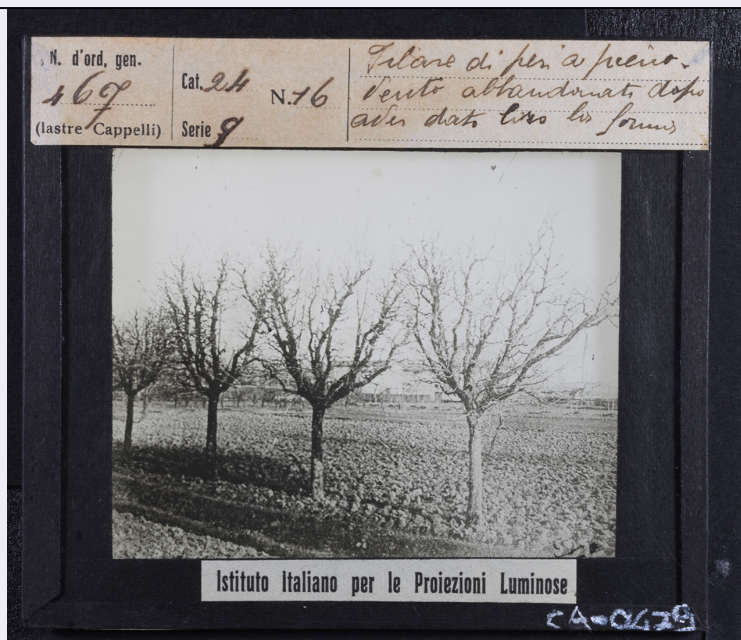 N. d'ord. gen.
467
(lastre Cappelli)
Cat. 24
Serie 9
N. 16
Filare di peri a pieno
vento abbandonati dopo
aver dato loro la forma
Istituto Italiano per le Proiezioni Luminose
CA-0429